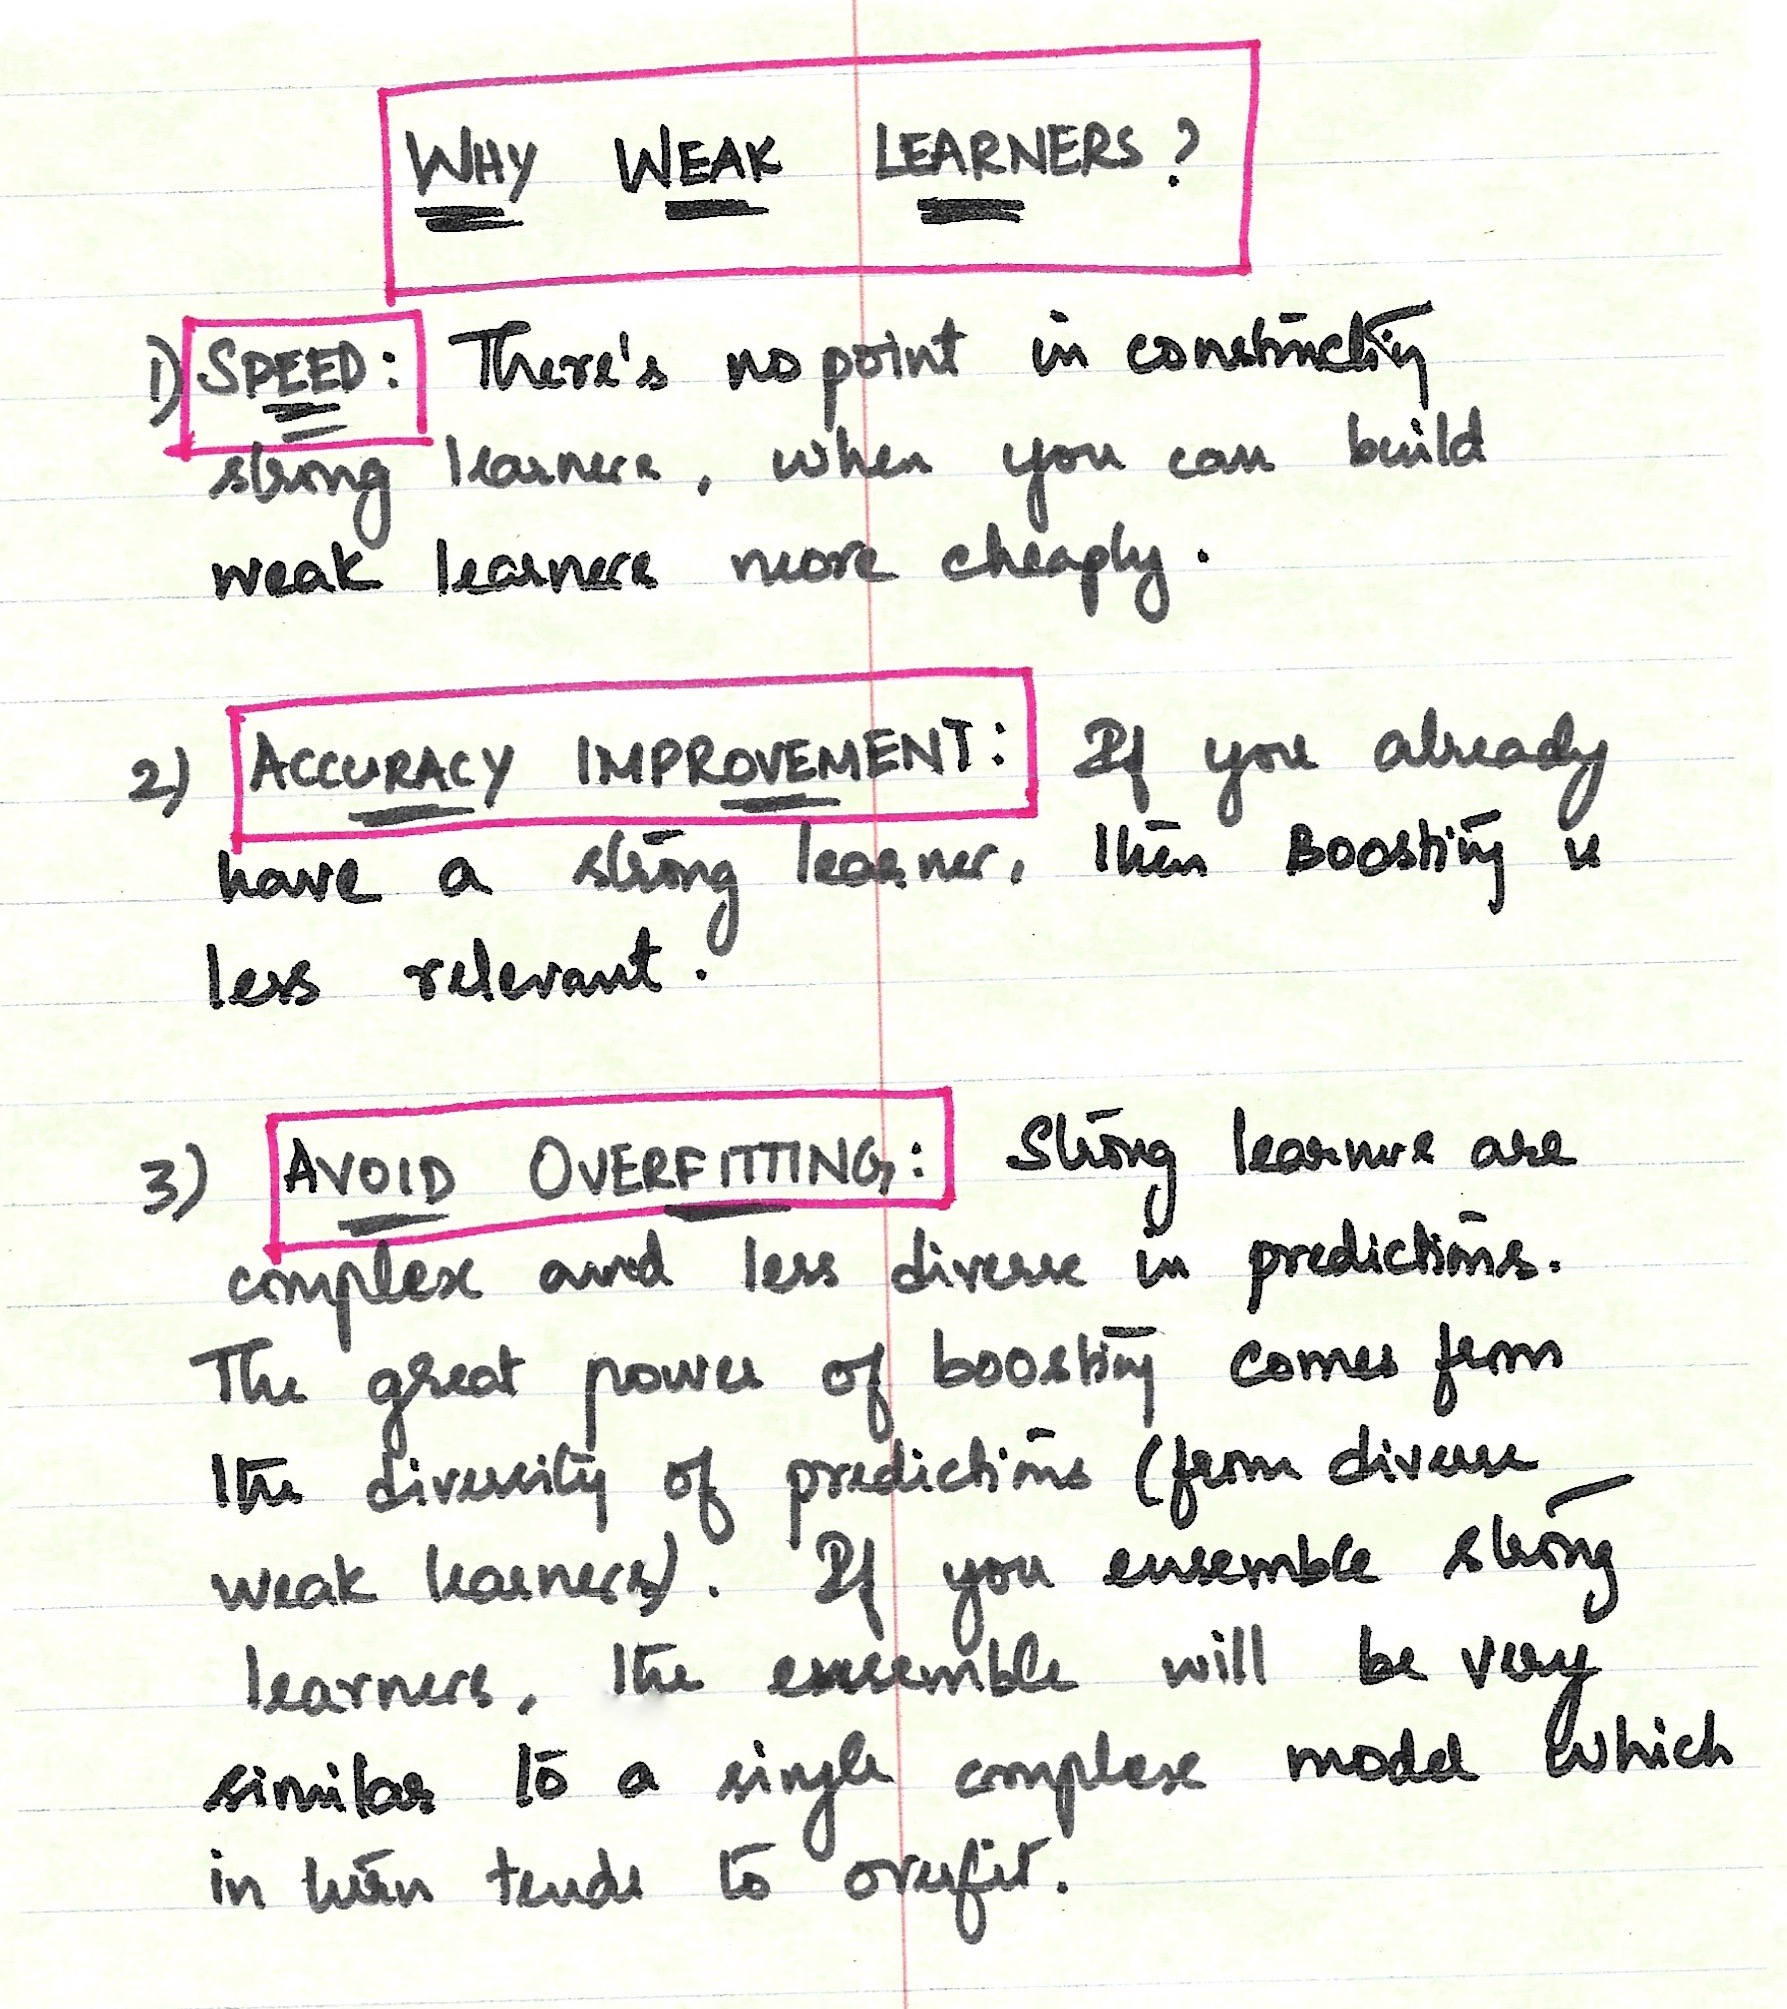 WHY WEAK LEARNERS?
1) SPEED: There's no point in constructing
strong learners, when you can build
weak learners more cheaply.
2) ACCURACY IMPROVEMENT: If you already
have a strong learner, then Boosting is
less relevant.
3) AVOID OVERFITTING: Strong learners are
complex and less diverse in predictions.
The great power of boosting comes from
the diversity of predictions (from diverse
weak learners). If you ensemble strong
learners, the ensemble will be very
similar to a single complex model which
in turn tends to overfit.